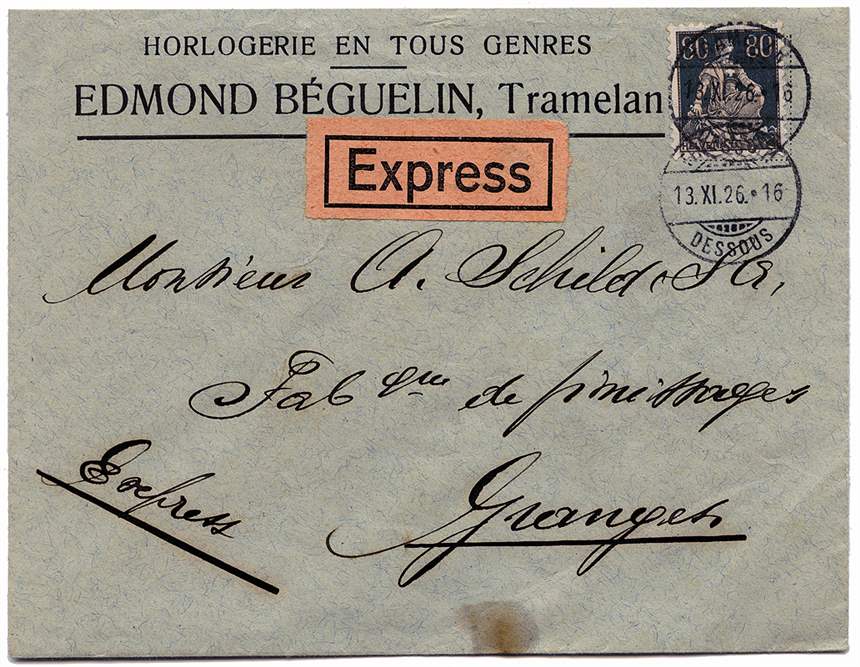 HORLOGERIE EN TOUS GENRES
EDMOND BÉGUELIN, Tramelan
80 80
13.XI.26.•16
HELVETIA
Express
13.XI.26.•16
DESSOUS
Monsieur A. Schild, Sr.,
Fabque de finissages
Express
Granges